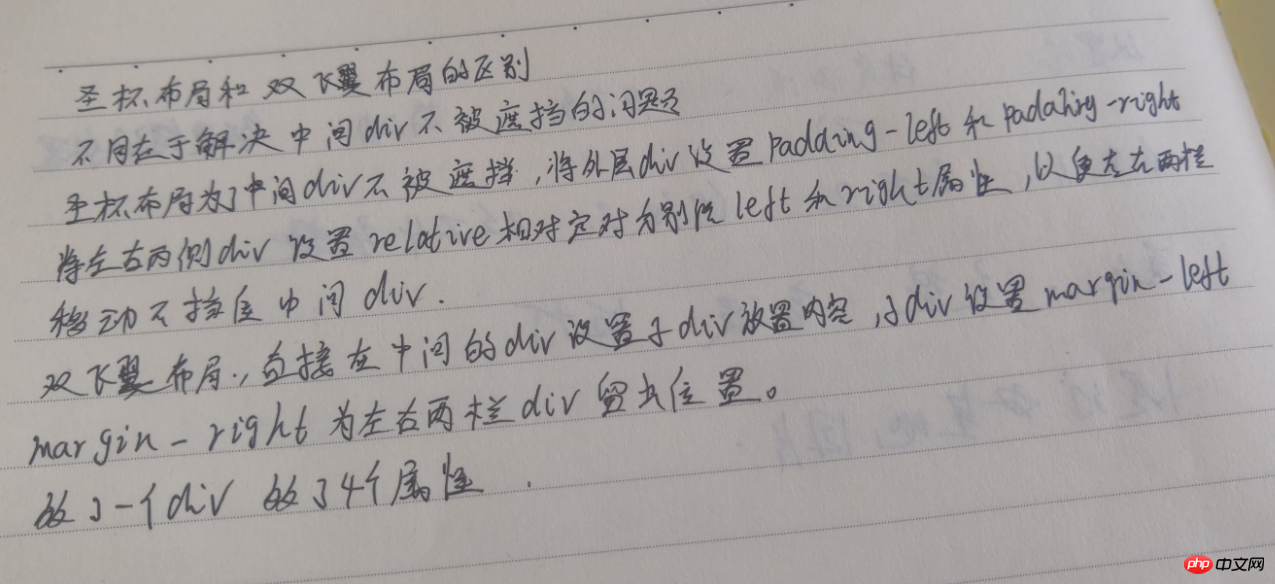 圣杯布局和双飞翼布局的区别
不同在于解决中间div不被遮挡的问题
圣杯布局为了中间div不被遮挡,将外层div设置padding-left和padding-right
将左右两侧div设置relative相对定对分别设left和right属性,以便左右两栏
移动不挡住中间div.
双飞翼布局,直接在中间的div设置子div放置内容,子div设置margin-left
margin-right为左右两栏div留出位置。
了一个div 了4个属性.
php中文网